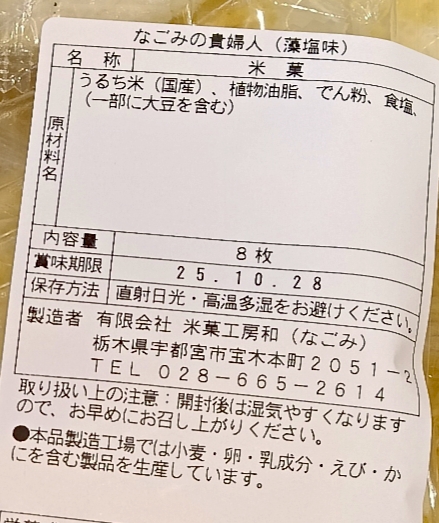 なごみの貴婦人（藻塩味）
名称 米菓
原材料名 うるち米（国産）、植物油脂、でん粉、食塩、
（一部に大豆を含む）
内容量 8枚
賞味期限 25.10.28
保存方法 直射日光・高温多湿をお避けください。
製造者 有限会社 米菓工房和（なごみ）
栃木県宇都宮市宝木本町２０５１－２
ＴＥＬ ０２８－６６５－２６１４
取り扱い上の注意：開封後は湿気やすくなります
ので、お早めにお召し上がりください。
●本品製造工場では小麦・卵・乳成分・えび・か
にを含む製品を生産しています。